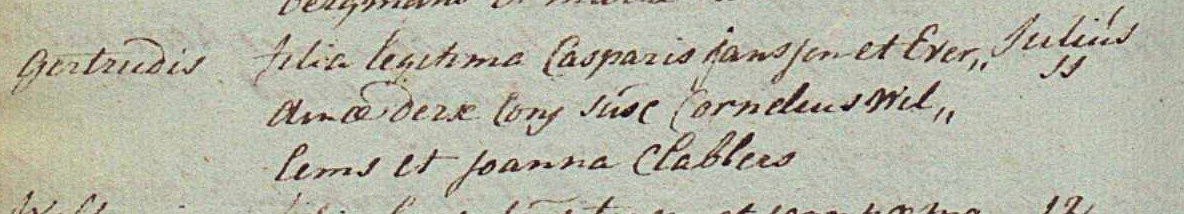 Gertrudis filia legitima Casparis janssen et Ever„ Julius
amæ Derx Conj Susc Cornelius Wil„ 11
lems et joanna Clabbers
12